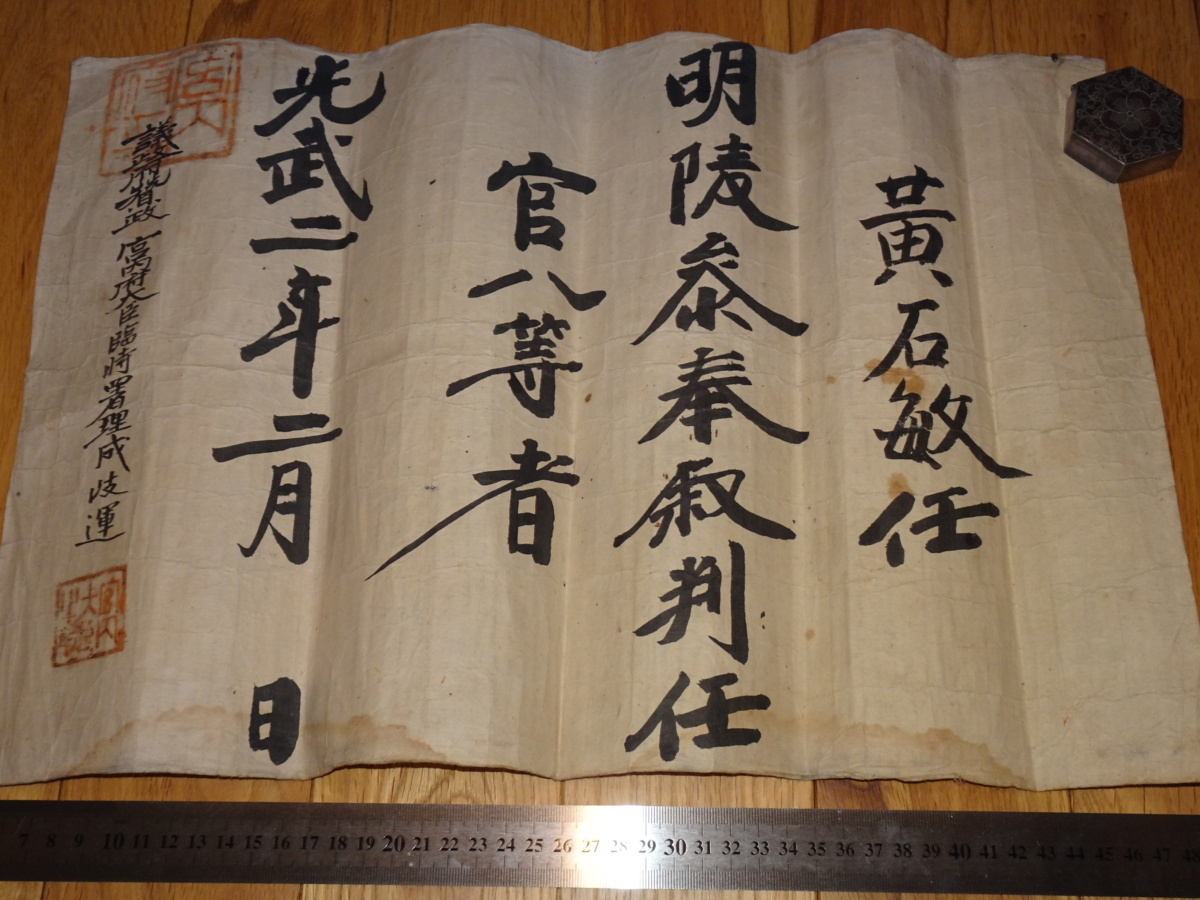 黃石敏任
明陵叅奉敍判任
官八等者
光武二年二月　日
議政府贊政宮內府大臣臨時署理成岐運
7 8 9 10 11 12 13 14 15 16 17 18 19 20 21 22 23 24 25 26 27 28 29 30 31 32 33 34 35 36 37 38 39 40 41 42 43 44 45 46 47 48